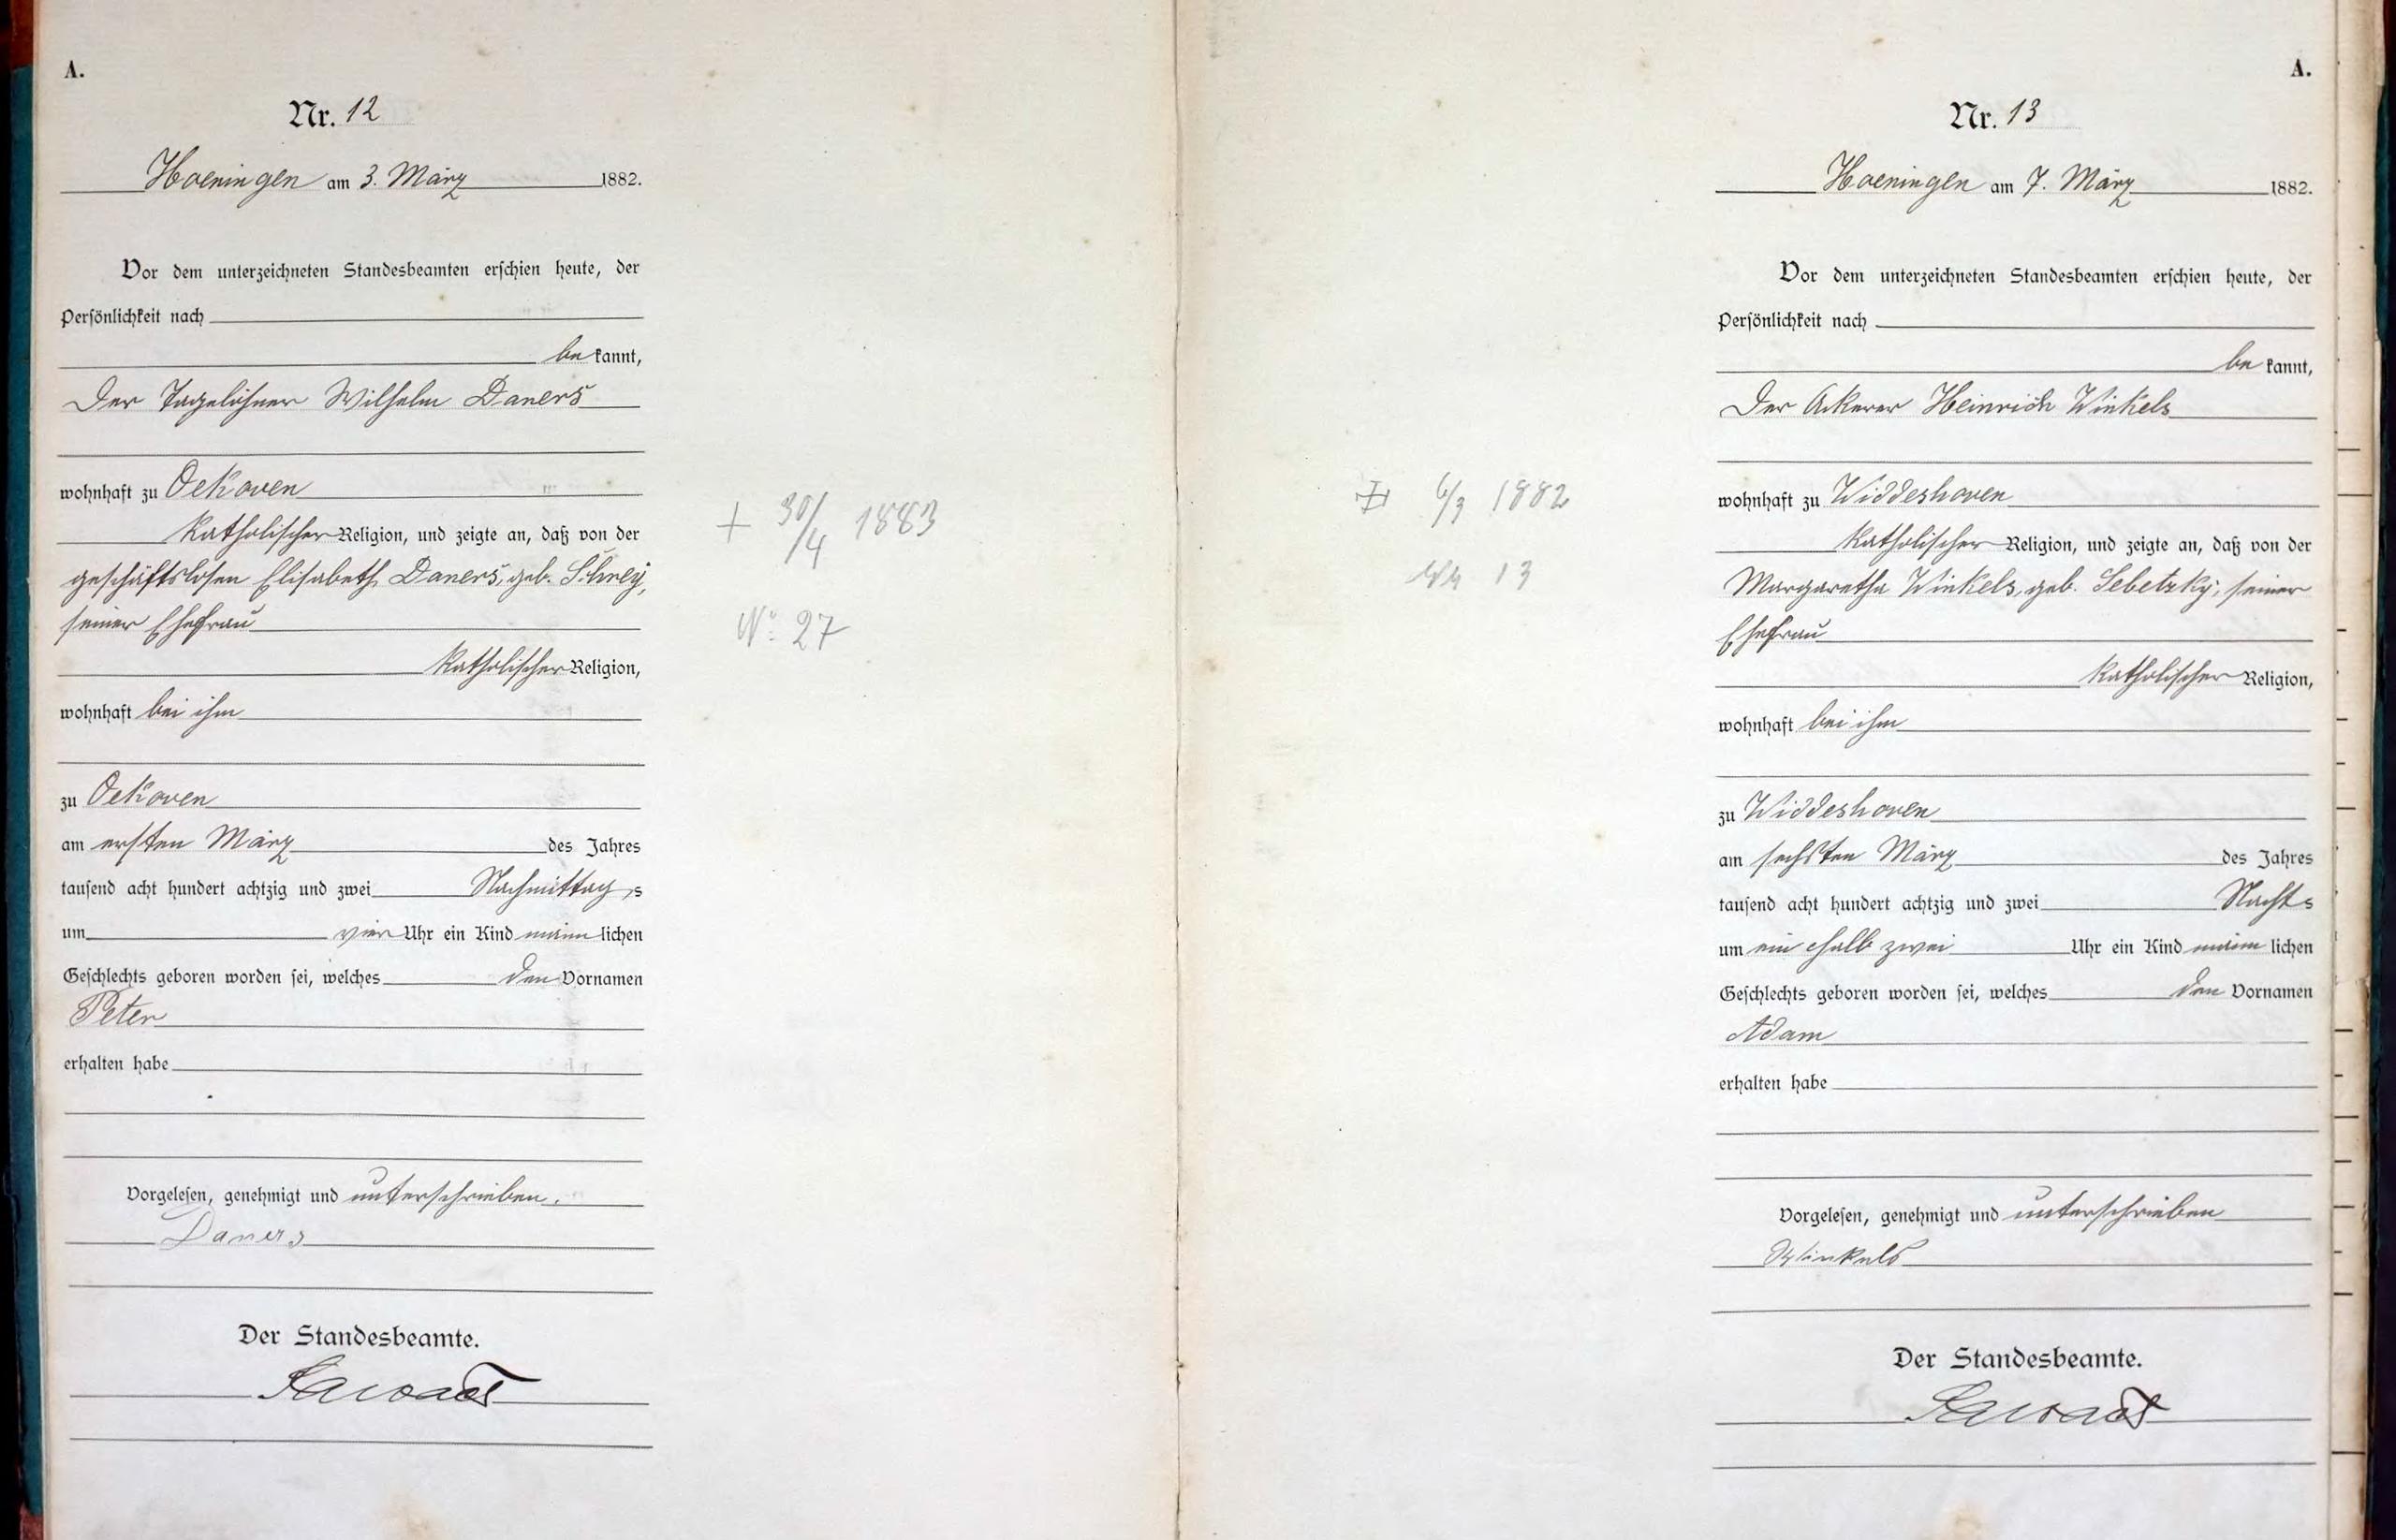 A.
Nr. 12
Hoeningen am 3. März 1882.
Vor dem unterzeichneten Standesbeamten erschien heute, der
Persönlichkeit nach
be kannt,
Der Tagelöhner Wilhelm Daners
wohnhaft zu Oekoven
katholischer Religion, und zeigte an, daß von der
geschäftslosen Elisabeth Daners, geb. Schney,
seiner Ehefrau
katholischer Religion,
wohnhaft bei ihm
zu Oekoven
am ersten März des Jahres
tausend acht hundert achtzig und zwei Nachmittag s
um vier Uhr ein Kind männ lichen
Geschlechts geboren worden sei, welches den Vornamen
Peter
erhalten habe
Vorgelesen, genehmigt und unterschrieben.
Daners
Der Standesbeamte.
+ 30/4 1883
No 27
A.
Nr. 13
Hoeningen am 7. März 1882.
Vor dem unterzeichneten Standesbeamten erschien heute, der
Persönlichkeit nach
be kannt,
Der Ackerer Heinrich Winkels
wohnhaft zu Widdeshoven
katholischer Religion, und zeigte an, daß von der
Margaretha Winkels, geb. Sebetzky, seiner
Ehefrau
katholischer Religion,
wohnhaft bei ihm
zu Widdeshoven
am sechsten März des Jahres
tausend acht hundert achtzig und zwei Nacht s
um ein halb zwei Uhr ein Kind männ lichen
Geschlechts geboren worden sei, welches den Vornamen
Adam
erhalten habe
Vorgelesen, genehmigt und unterschrieben
Winkels
Der Standesbeamte.
6/3 1882
13